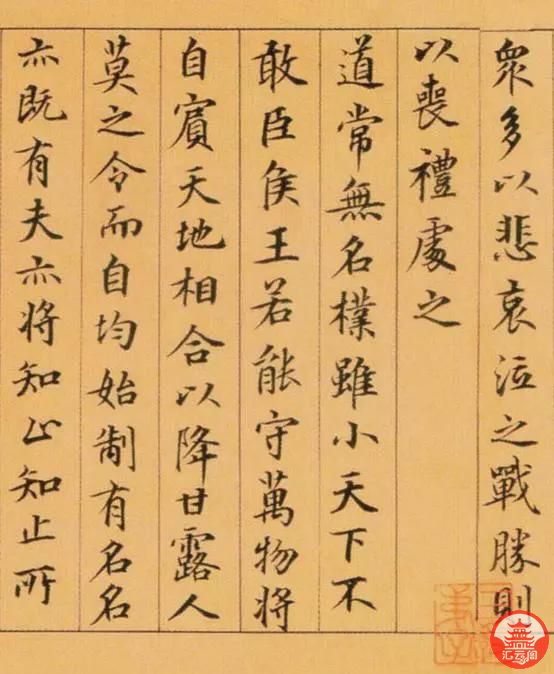 衆多以悲哀泣之戰勝則
以喪禮處之
道常無名樸雖小天下不
敢臣侯王若能守萬物將
自賓天地相合以降甘露人
莫之令而自均始制有名名
亦既有夫亦将知止知止所
汇云阁